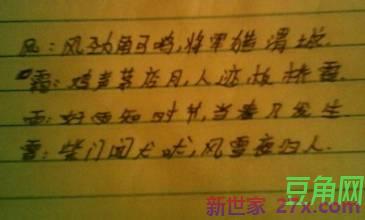 风:风劲角弓鸣,将军猎渭城.
霜:鸡声茅店月,人迹板桥霜.
雨:好雨知时节,当春乃发生
雪:柴门闻犬吠,风雪夜归人.
豆角网
新世家 27x.com